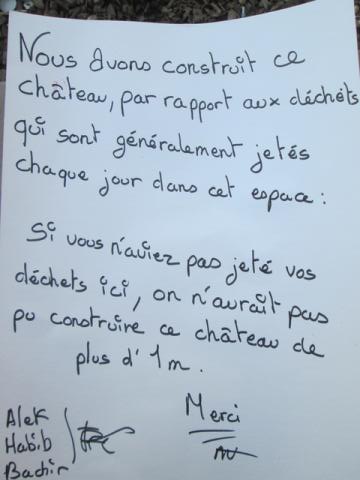 Nous avons construit ce
château, par rapport aux déchets
qui sont généralement jetés
chaque jour dans cet espace :
Si vous n'aviez pas jeté vos
déchets ici, on n'aurait pas
pu construire ce château de
plus d'1m.
Merci
Alek
Habib
Bachir